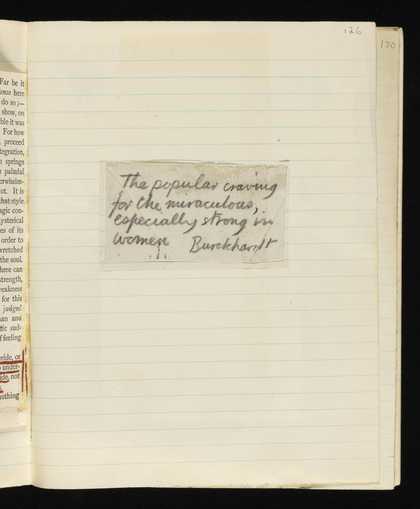 126
130
Far be it
here
do so ;—
show, on
ble it was
For how
proceed
tegration,
springs
painful
erwhelm-
ot. It is
that style
agic con-
ysterical
es of its
order to
wretched
the soul.
here can
strength,
eakness
for this
judged
man and
tic sud-
f feeling
or
under-
not
nothing
The popular craving
for the miraculous,
especially strong in
women Burckhardt